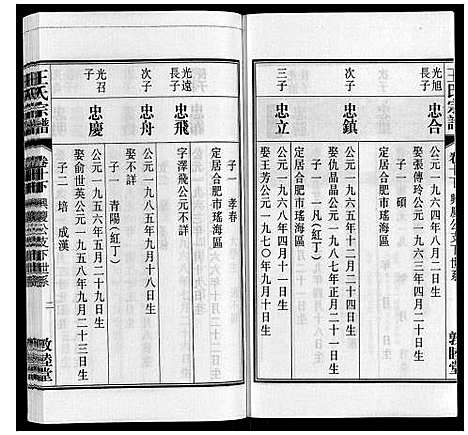 王氏宗譜
卷十下
興慶公支下世系
敦睦堂
光旭
長子
忠合
公元一九六四年八月二日生
娶張傳玲公元一九六三年四月二日生
子一 碩
定居合肥市瑤海區
次子
忠鎮
公元一九六五年十二月二十四日生
娶 公元一九六八年正月二十一日生
子一 一凡(紅丁)
定居合肥市瑤海區
三子
忠立
公元一九六八年四月十一日生
娶王芳公元一九七〇年九月十日生
子一 孝春
定居合肥市瑤海區
光遠
長子
忠飛
字澤飛公元不詳
次子
忠舟
公元一九八五年九月十八日生
娶不詳
子一 青陽(紅丁)
光召
子
忠慶
公元一九五六年五月二十九日生
娶俞世英公元一九五八年九月二十三日生
子二 培 成漢
王氏宗譜
卷十下
興慶公支下世系
二
敦睦堂